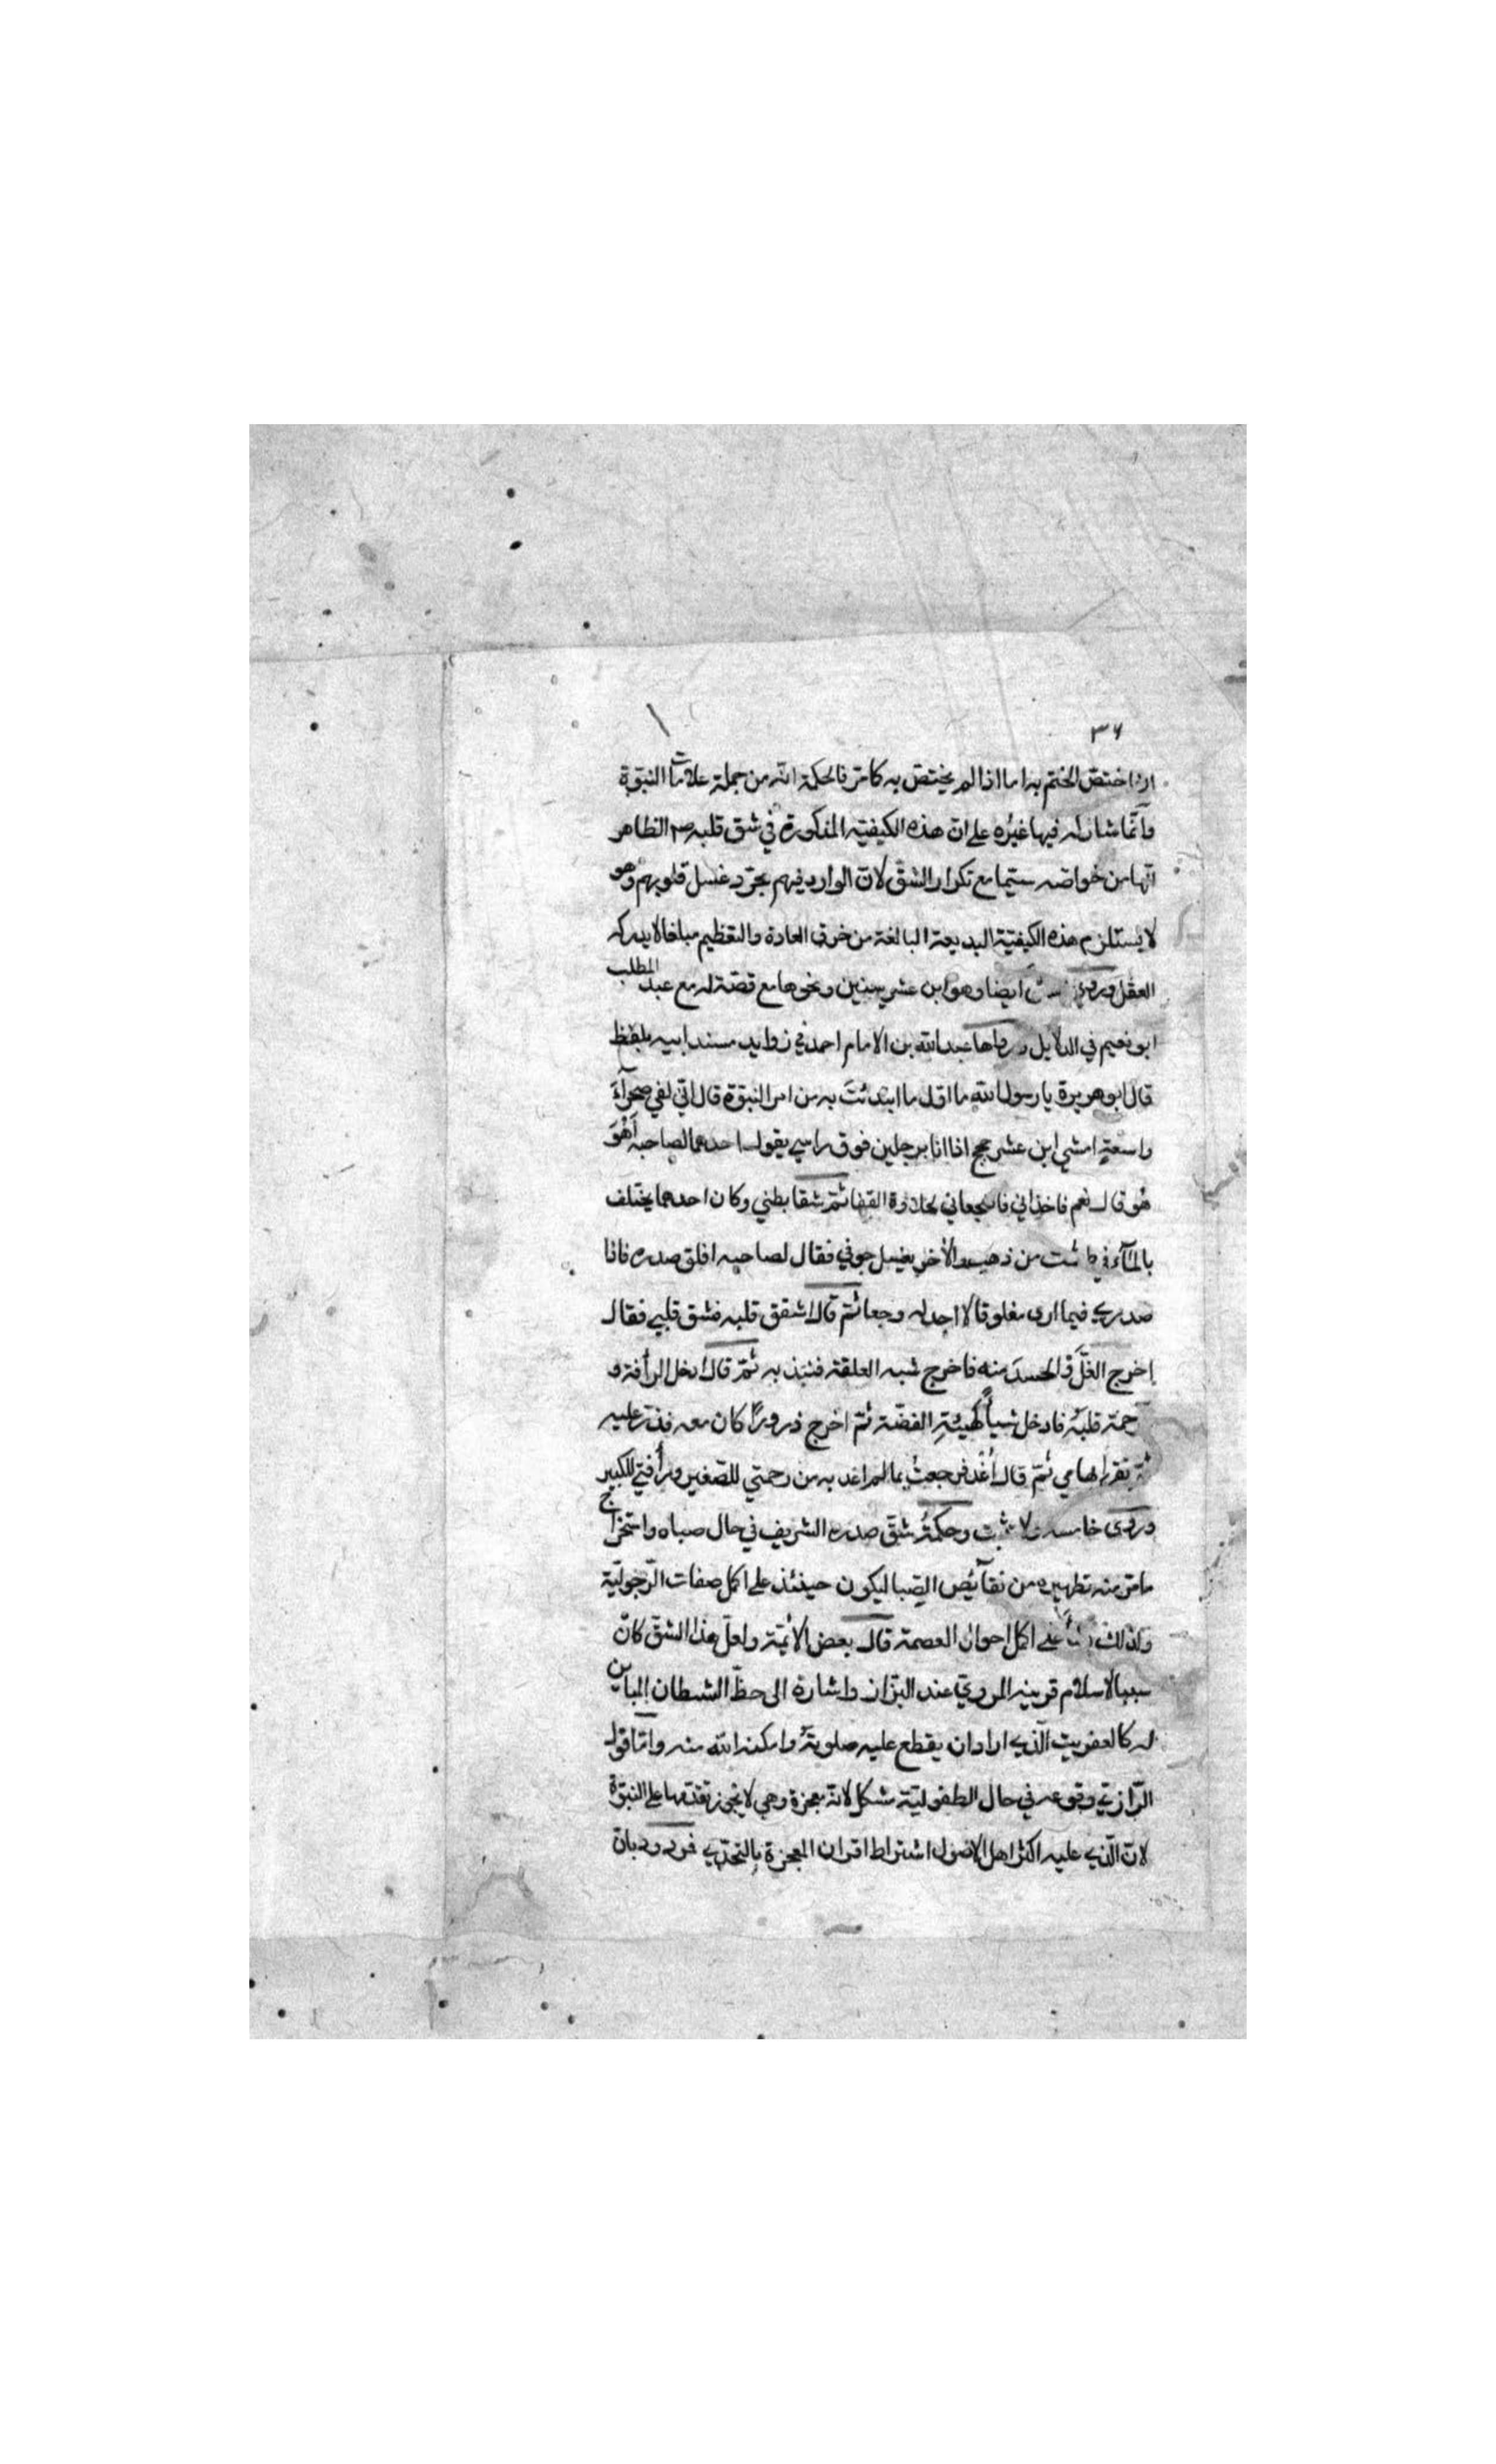 ٣٦
اذا اختصّ الختم به اما اذا لم يختصّ به كما مرّ فالحكمة انّه من جملة علامات النبوّة
وانّما شاركه فيها غيرُه على انّ هذه الكيفيّة المذكورة في شق قلبه الظاهر
انّها من خواصّه سيّما مع تكرار الشّق لانّ الوارد فيهم مجرّد غسل قلوبهم وهو
لا يستلزم هذه الكيفيّة البديعة البالغة من خرق العادة والتعظيم مبلغا لا يدركه
العقل وروي ايضا وهو ابن عشر سنين ونحوها مع قصّة له مع عبد المطلب
ابو نعيم في الدلايل ورواها عبد الله بن الامام احمد في زوايد مسند ابيه بلفظ
قال ابو هريرة يا رسول الله ما اوّل ما ابتدئتَ به من امر النبوّة قال انّي لفي صحرآءَ
واسعةٍ امشي ابن عشر حجج اذا انا برجلين فوق راسي يقول احدهما لصاحبه أهُوَ
هُو قال نعم فاخذاني فاضجعاني لحلاوة القفا ثمّ شقا بطني وكان احدهما يختلف
بالمآء في طشت من ذهب والأخر يغسل جوفي فقال لصاحبه افلق صدره فاذا
صدري فيما ارى مفلوقا لا اجد له وجعا ثمّ قال اشقق قلبه فشق قلبي فقال
اخرج الغلَّ والحسدَ منه فاخرج شبه العلقة فنبذ به ثمّ قال ادخل الرأفة و
الرحمة قلبَهُ فادخل شيأً كهيئةِ الفضّة ثمّ اخرج ذرورًا كان معه فذرّ عليه
ثمّ نقر ابهامي ثمّ قال اُغْدُ فرجعتُ بما لم اغد به من رحمتي للصّغير ورأفتي للكبير
وروى خامسه ولا يثبت وحكمةُ شقّ صدره الشريف في حال صباه واستخراج
ما مرّ منه تطهيره من نقآئص الصِّبا ليكون حينئذ على اكمل صفات الرّجوليّة
ولذلك نشأ على اكمل احوال العصمة قال بعض الأئمّة ولعلّ هذا الشّق كان
سببا لاسلام قرينه المرويّ عند البزّار واشارة الى حظّ الشيطان المباين
له كالعفريت الّذي اراد ان يقطع عليه صلوته وامكنه الله منه وامّا قول
الرّازي وقوعه في حال الطفوليّة مشكل لانّه معجزة وهي لا يجوز تقدّمها على النبوّة
لانّ الّذي عليه اكثر اهل الاصول اشتراط اقران المعجزة بالتحدّي فمردود بانّ